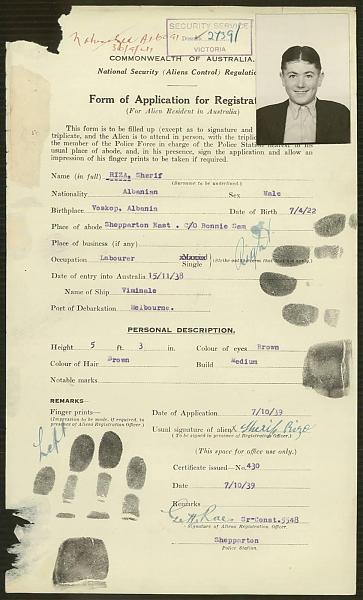 SECURITY SERVICE
VICTORIA
COMMONWEALTH OF AUSTRALIA.
National Security (Aliens Control) Regulatio
Form of Application for Registrat
(For Alien Resident in Australia)
This form is to be filled up (except as to signature and
triplicate, and the Alien is to attend in person, with the tripli
the member of the Police Force in charge of the Police Station nearest to his
usual place of abode, and, in his presence, sign the application and allow an
impression of his finger prints to be taken if required.
Name (in full) RIZA, Sherif
(Surname to be underlined.)
Nationality Albanian Sex Male
Birthplace Voskop, Albania Date of Birth 7/4/22
Place of abode Shepparton East . C/O Bonnie Sam
Place of business (if any)
Occupation Labourer Married Single
Right
Date of entry into Australia 15/11/38
Name of Ship Viminale
Port of Debarkation Melbourne.
PERSONAL DESCRIPTION.
Height 5 ft. 3 in. Colour of eyes Brown
Colour of Hair Brown Build Medium
Notable marks
REMARKS—
Finger prints— Date of Application 7/10/39
(Impression to be made, if required, in presence of Aliens Registration Officer.)
Usual signature of alien Sherif Riza
(To be signed in presence of Registration Officer.)
Left
(This space for office use only.)
Certificate issued—No. 430
Date 7/10/39
Remarks
Sr-Const. 5548
Signature of Aliens Registration Officer.
Shepparton
Police Station.